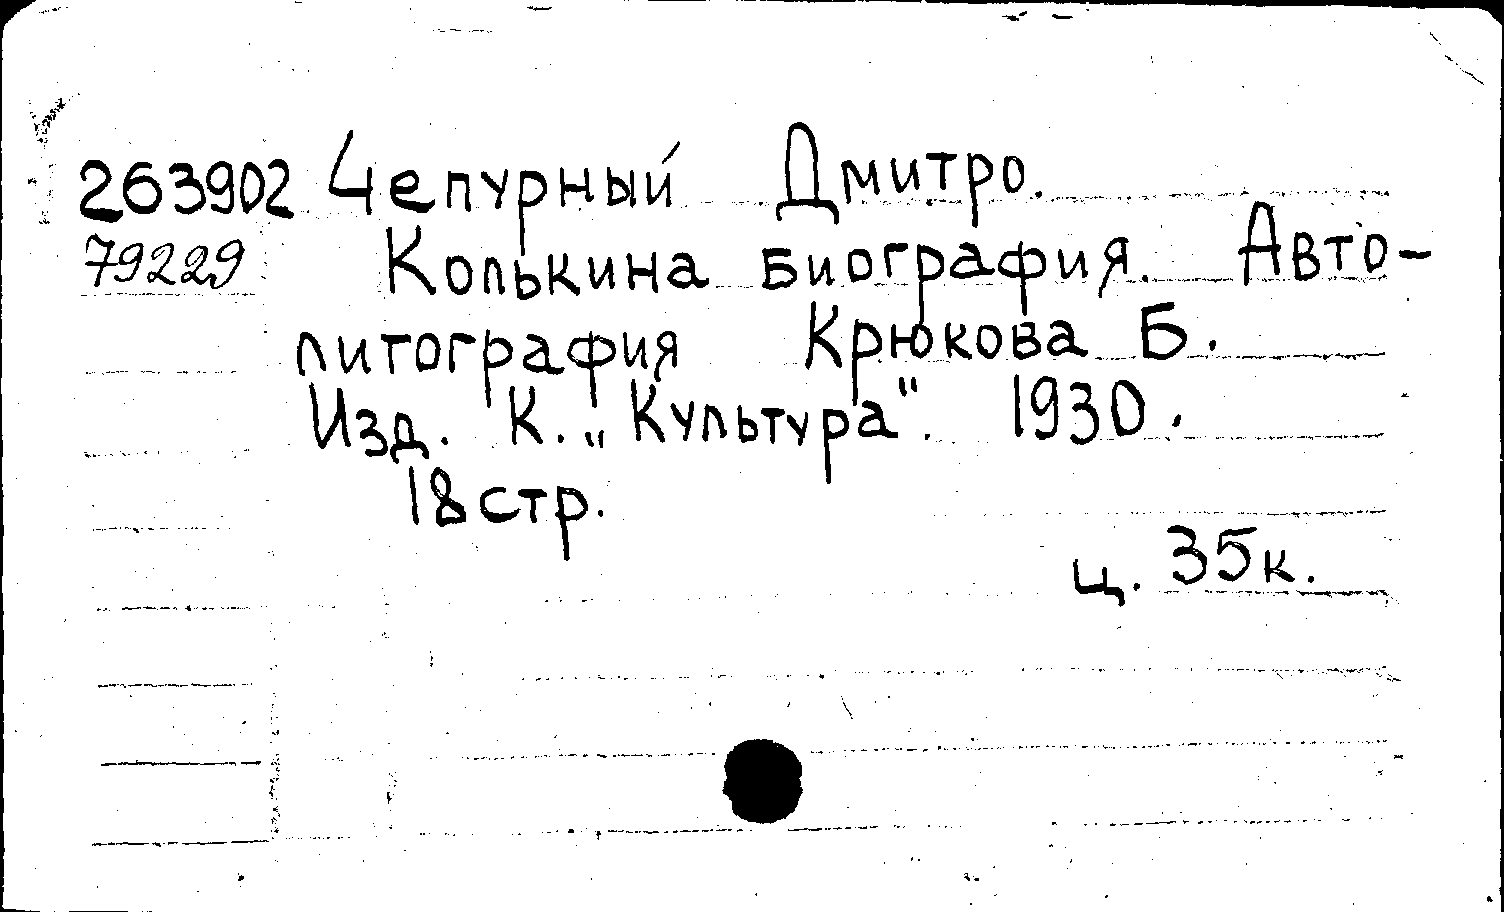 263902 Чепурный Дмитро.
79229 Колькина биография. Авто-
литография Крюкова Б.
Изд. К. „Культура“. 1930.
18 стр.
ц. 35 к.